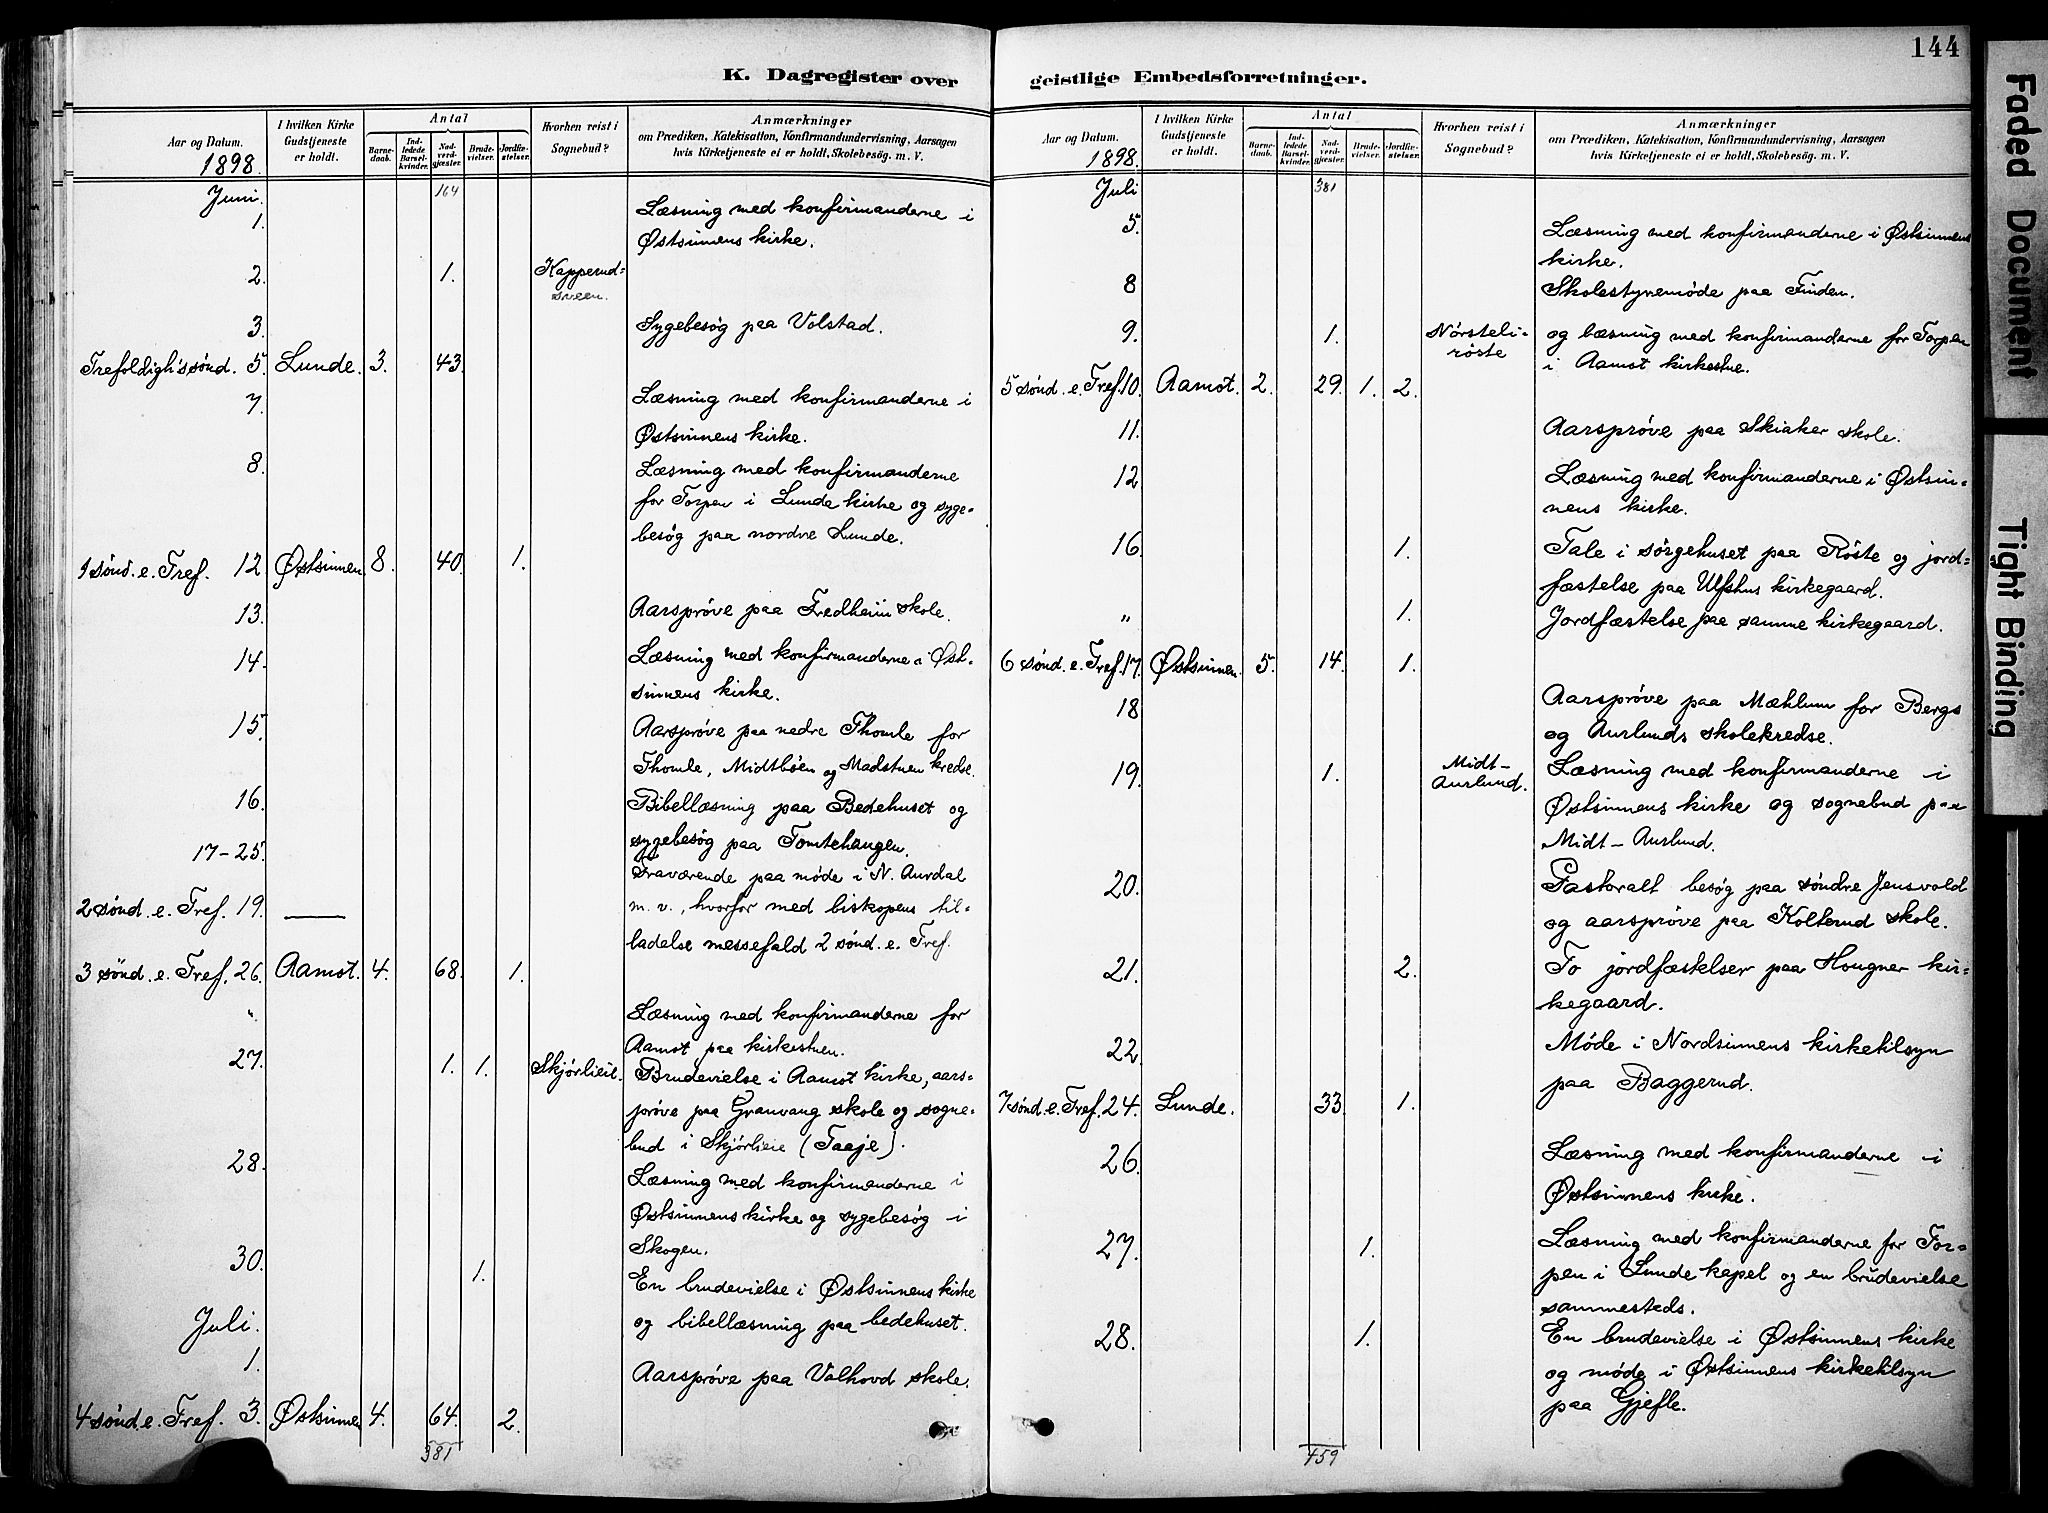 144
K. Dagregister over geistlige Embedsforretninger.
Aar og Datum.
1898.
I hvilken Kirke Gudstjeneste er holdt.
Antal
Barnedaab.
Indledede Barselkvinder.
Nadverdgjæster.
Brudevielser.
Jordfæstelser.
Hvorhen reist i Sognebud?
Anmærkninger
om Prædiken, Katekisation, Konfirmandundervisning, Aarsagen
hvis Kirketjeneste ei er holdt, Skolebesøg. m. V.
Juni. 164
1. Læsning med konfirmanderne i
Østsinnens kirke.
2. 1. Kapperud-
sveen.
3. Sygebesøg paa Volstad.
Trefoldigh's sønd. 5. Lunde. 3. 43.
7. Læsning med konfirmanderne i
Østsinnens kirke.
8. Læsning med konfirmanderne
for Torpen i Lunde kirke og syge-
besøg paa nordre Lunde.
1 sønd. e. Tref. 12 Østsinnen. 8. 40. 1.
13. Aarsprøve paa Fredheim skole.
14. Læsning med konfirmanderne i Øst-
sinnens kirke.
15. Aarsprøve paa nedre Thomle for
Thomle, Midtbøen og Madstuen kredse.
16. Bibellæsning paa Bedehuset og
sygebesøg paa Tomtehaugen.
17-25. Fraværende paa møde i N. Aurdal
2 sønd. e. Tref. 19. — m. v., hvorfor med biskopens til-
ladelse messefald 2 sønd. e. Tref.
3 sønd. e. Tref. 26. Aamot. 4. 68. 1.
" Læsning med konfirmanderne for
Aamot paa kirkestuen.
27. 1. 1. Skjørlieie. Brudevielse i Aamot kirke, aars-
prøve paa Granvang skole og sogne-
bud i Skjørlieie (Taaje).
28. Læsning med konfirmanderne i
Østsinnens kirke og sygebesøg i
Skogen.
30. 1. En brudevielse i Østsinnens kirke
og bibellæsning paa bedehuset.
Juli.
1. Aarsprøve paa Valhovd skole.
4 sønd. e. Tref. 3. Østsinnen 4. 64. 2.
381
Aar og Datum.
1898.
I hvilken Kirke Gudstjeneste er holdt.
Antal
Barnedaab.
Indledede Barselkvinder.
Nadverdgjæster.
Brudevielser.
Jordfæstelser.
Hvorhen reist i Sognebud?
Anmærkninger
om Prædiken, Katekisation, Konfirmandundervisning, Aarsagen
hvis Kirketjeneste ei er holdt, Skolebesøg. m. V.
Juli 381
5. Læsning med konfirmanderne i Østsinnens
kirke.
8 Skolestyremøde paa Finden.
9. 1. Nørsteli-
røste og læsning med konfirmanderne for Torpen
i Aamot kirkestue.
5 sønd. e. Tref. 10. Aamot. 2. 29. 1. 2.
11. Aarsprøve paa Skiaker skole.
12 Læsning med konfirmanderne i Østsin-
nens kirke.
16. 1. Tale i sørgehuset paa Røste og jord-
fæstelse paa Ulfshus kirkegaard.
" 1. Jordfæstelse paa samme kirkegaard.
6 sønd. e. Tref. 17. Østsinnen. 5. 14. 1.
18 Aarsprøve paa Mæhlum for Bergs
og Aurlunds skolekredse.
19. 1. Midt-
Aurlund. Læsning med konfirmanderne i
Østsinnens kirke og sognebud paa
Midt-Aurlund.
20. Pastoralt besøg paa søndre Jensvold
og aarsprøve paa Kolterud skole.
21. 2. To jordfæstelser paa Hougner kir-
kegaard.
22. Møde i Nordsinnens kirketilsyn
paa Baggerud.
7 sønd. e. Tref. 24. Lunde. 33. 1.
26. Læsning med konfirmanderne i
Østsinnens kirke.
27. 1. Læsning med konfirmanderne for Tor-
pen i Lunde kapel og en brudevielse
sammesteds.
28. 1. En brudevielse i Østsinnens kirke
og møde i Østsinnens kirketilsyn
paa Gjefle.
459
Faded Document
Tight Binding